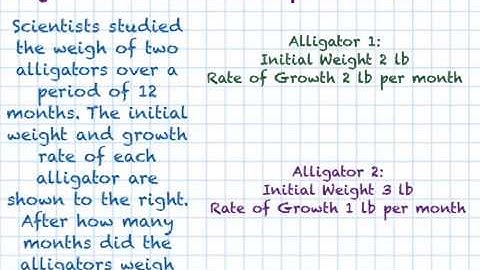 Scientists studied
the weigh of two
alligators over a
period of 12
months. The initial
weight and growth
rate of each
alligator are
shown to the right.
After how many
months did the
alligators weigh
Alligator 1:
Initial Weight 2 lb
Rate of Growth 2 lb per month
Alligator 2:
Initial Weight 3 lb
Rate of Growth 1 lb per month